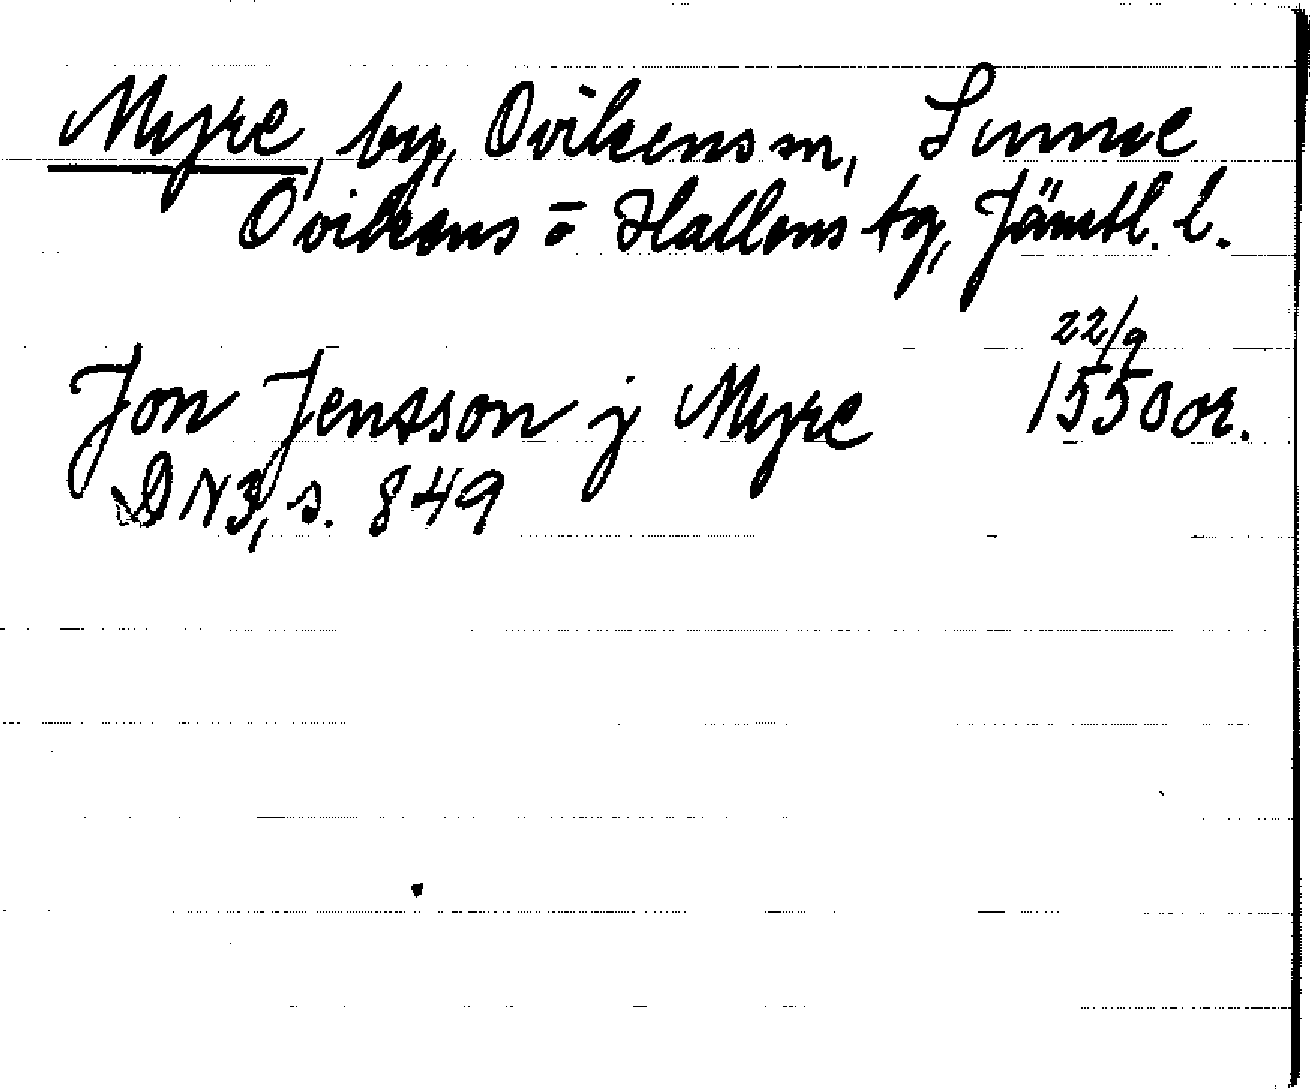 Myre, by, Ovikens sn, Sunne
Ovikens o Hallens tg, Jämtl. l.
22/9
Jon Jensson j Myre 1550 or.
DN 3, s. 849